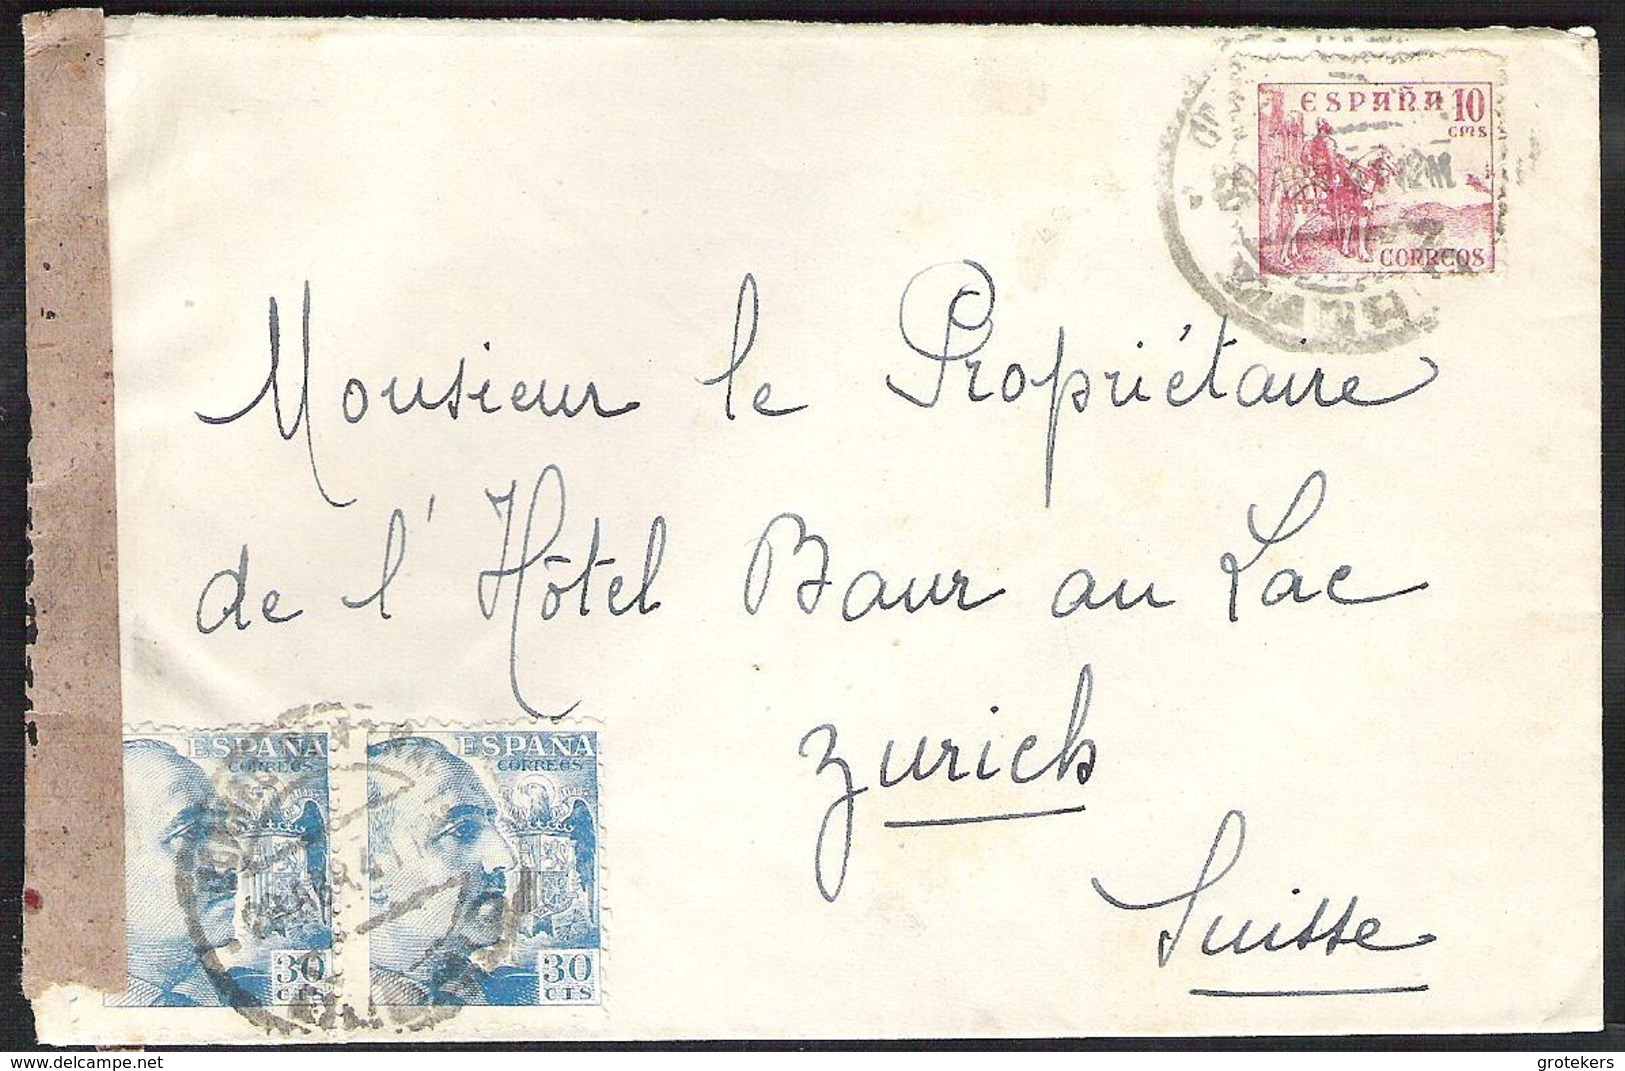 ESPAÑA 10
cms
12M
CORREOS
Monsieur le Propriétaire
de l'Hôtel Baur au Lac
Zurich
Suisse
ESPAÑA
CORREOS
30
CTS
ESPAÑA
CORREOS
30
CTS
grotekers